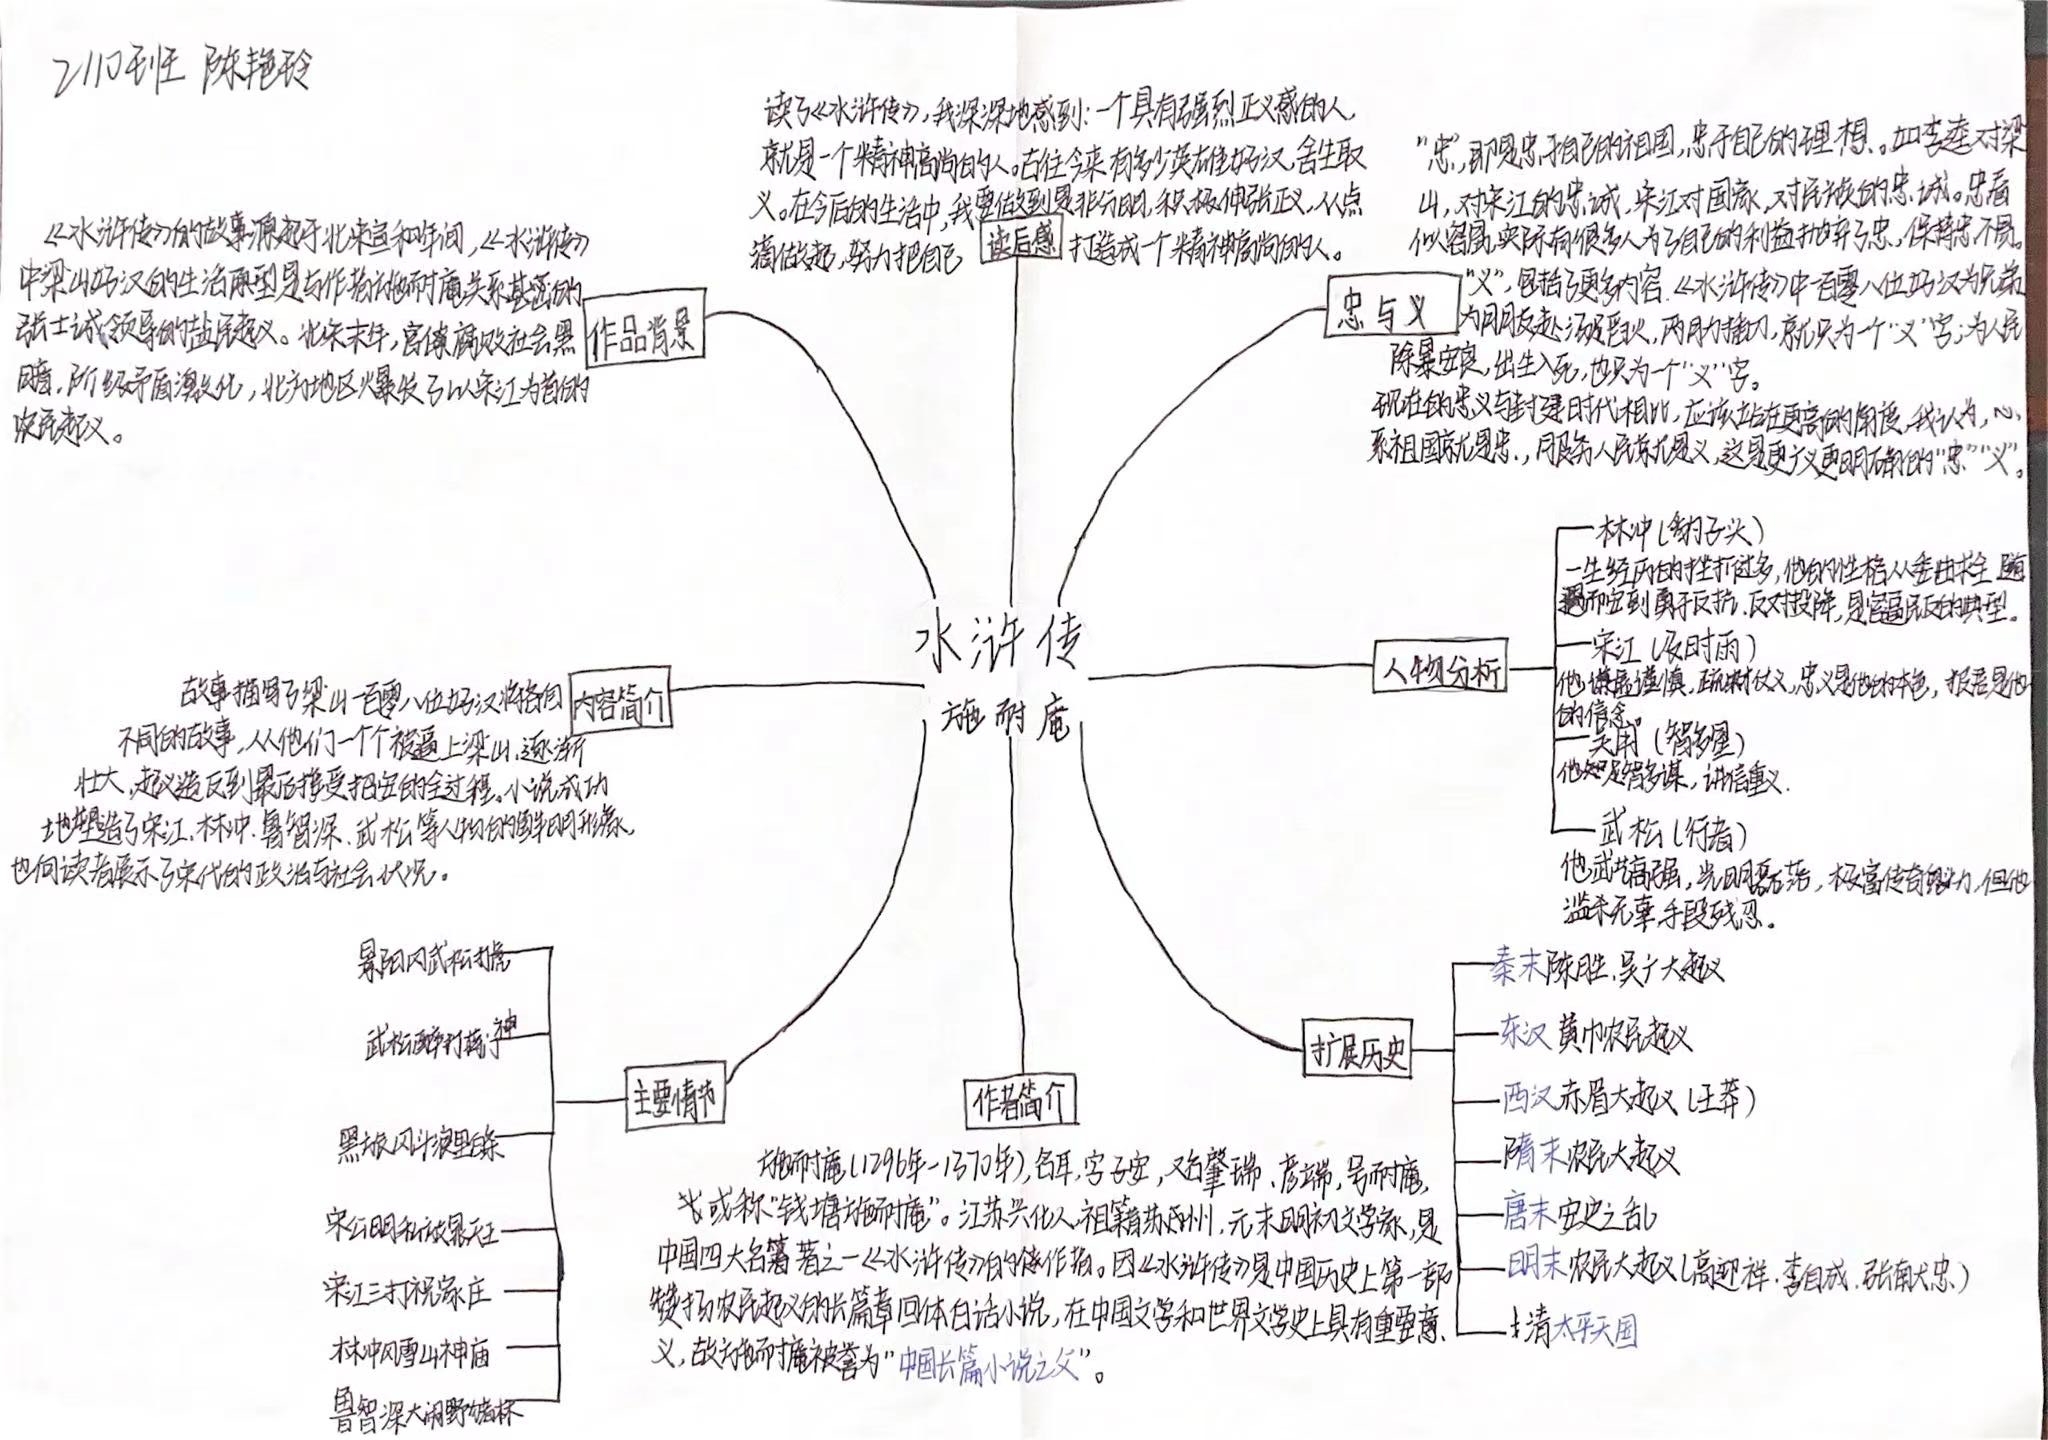 2110班 陈艳玲
读了《水浒传》,我深深地感到:一个具有强烈正义感的人,
就是一个精神高尚的人。古往今来有多少英雄好汉,舍生取
义。在今后的生活中,我要做到是非分明,积极伸张正义,从点
滴做起,努力把自己 打造成一个精神高尚的人。
读后感
"忠",即是忠于自己的祖国,忠于自己的理想。如李逵对梁
山,对宋江的忠诚,宋江对国家,对民族的忠诚。忠看
似容易,实际有很多人为了自己的利益抛弃了忠,保持忠不易。
"义",包括了更多内容.《水浒传》中一百零八位好汉为兄弟
为朋友赴汤蹈火,两肋插刀,就只为一个"义"字;为人民
除暴安良,出生入死,也只为一个"义"字。
现在的忠义与封建时代相比,应该站在更高的角度,我认为,心
系祖国就是忠,服务人民就是义,这是更广义更明确的"忠""义"。
忠与义
《水浒传》的故事源起于北宋宣和年间,《水浒传》
中梁山好汉的生活原型是与作者施耐庵关系甚密的
张士诚领导的盐民起义。北宋末年,官僚腐败社会黑
暗,阶级矛盾激化,北方地区爆发了以宋江为首的
农民起义。
作品背景
水浒传
施耐庵
人物分析
林冲(豹子头)
一生经历的挫折过多,他的性格从委曲求全 随
遇而安到勇于反抗、反对投降,是官逼民反的典型。
宋江(及时雨)
他谦虚谨慎,疏财仗义,忠义是他的本色,报吾是他
的信念。
吴用(智多星)
他足智多谋,讲信重义.
武松(行者)
他武艺高强,光明磊落,极富传奇魅力,但他
滥杀无辜,手段残忍。
内容简介
故事描写了梁山一百零八位好汉将各自
不同的故事,从他们一个个被逼上梁山,逐渐
壮大,起义造反到最后接受招安的全过程。小说成功
地塑造了宋江、林冲、鲁智深、武松等人物的鲜明形象,
也向读者展示了宋代的政治与社会状况。
主要情节
景阳冈武松打虎
武松醉打蒋门神
黑旋风斗浪里白条
宋公明私放晁天王
宋江三打祝家庄
林冲风雪山神庙
鲁智深大闹野猪林
作者简介
施耐庵(1296年-1370年),名耳,字子安,又名肇瑞、彦端,号耐庵,
或称"钱塘施耐庵"。江苏兴化人,祖籍苏州,元末明初文学家,是
中国四大名著之一《水浒传》的作者。因《水浒传》是中国历史上第一部
赞扬农民起义的长篇章回体白话小说,在中国文学和世界文学史上具有重要意
义,故施耐庵被誉为"中国长篇小说之父"。
扩展历史
秦末陈胜、吴广大起义
东汉 黄巾农民起义
西汉 赤眉大起义(王莽)
隋末农民大起义
唐末安史之乱
明末农民大起义(高迎祥、李自成、张献忠)
清太平天国